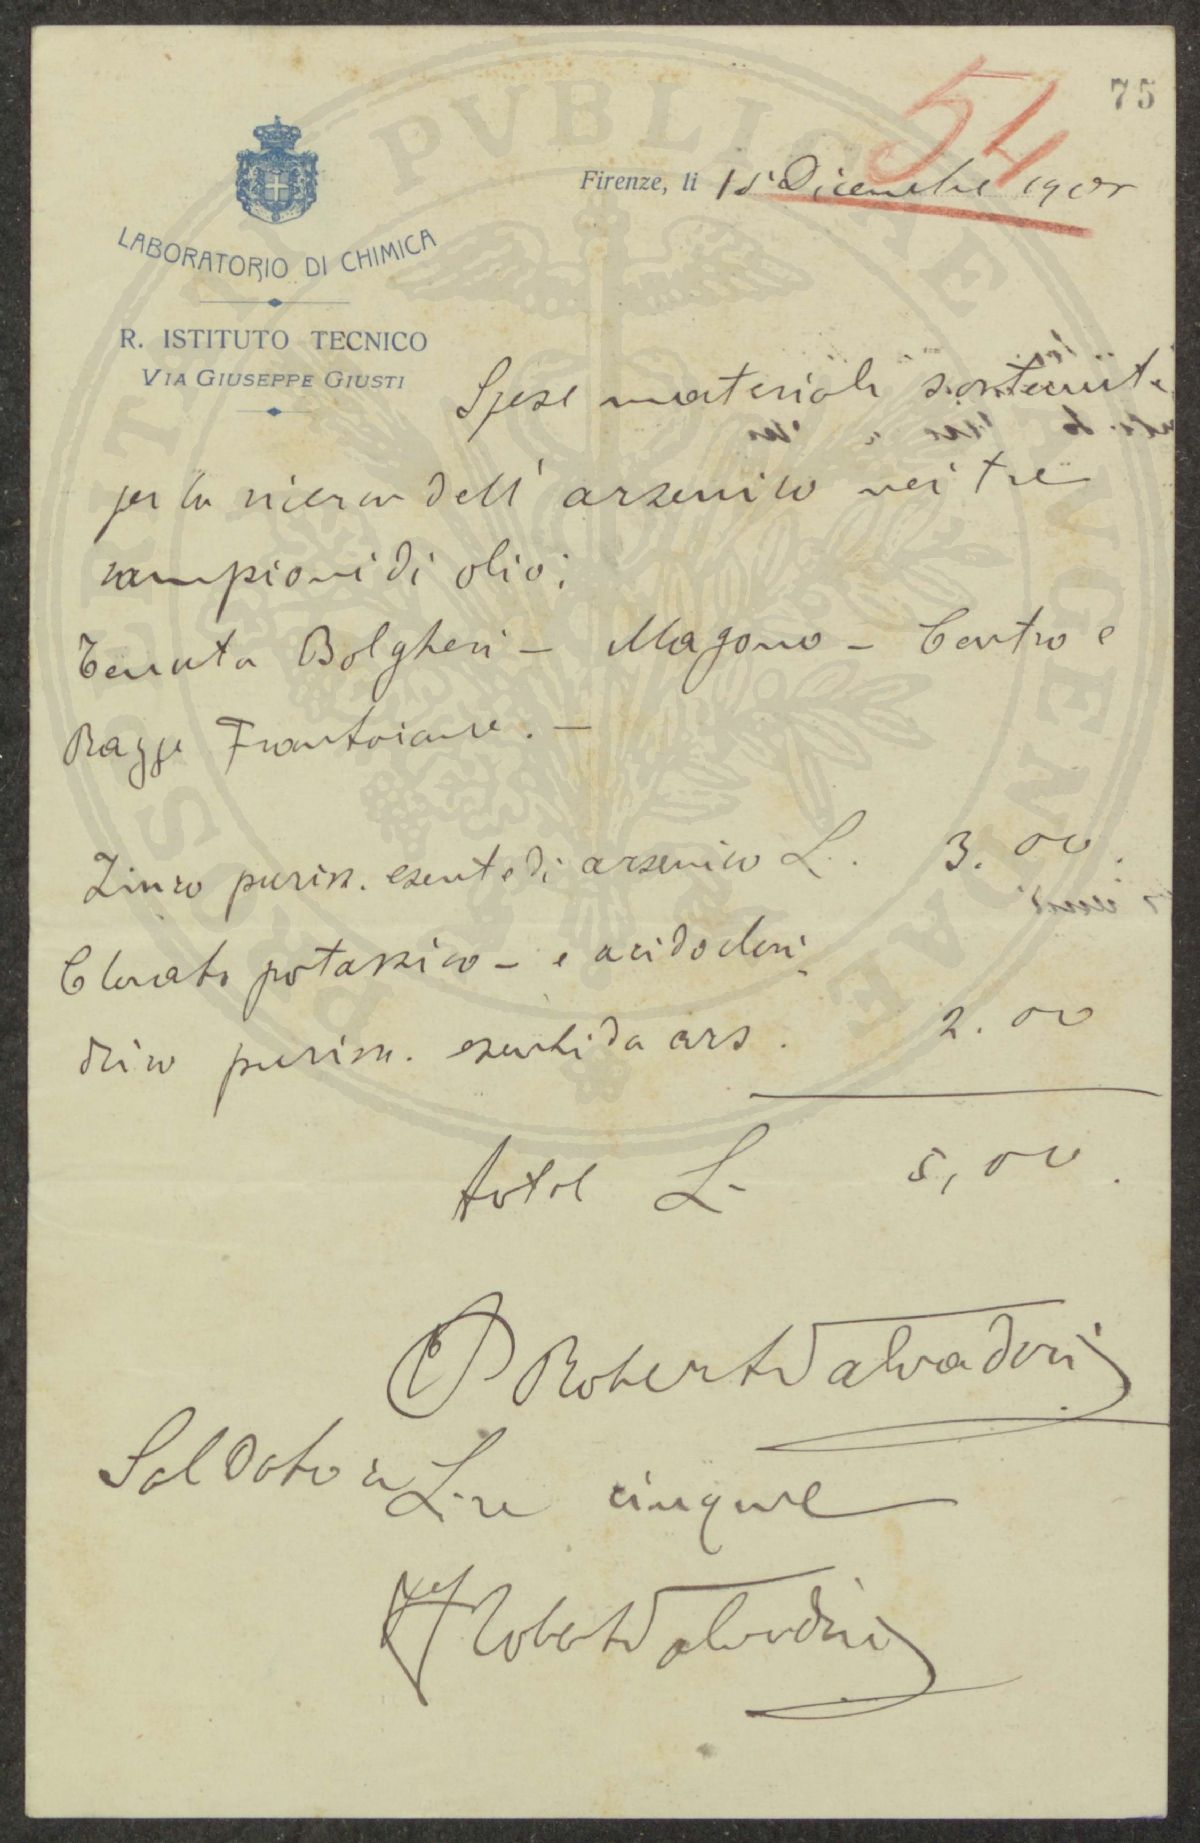 75
54
Firenze, li 15 Dicembre
LABORATORIO DI CHIMICA
R. ISTITUTO TECNICO
VIA GIUSEPPE GIUSTI
Spese materiali sostenute
per la ricerca dell'arsenico nei tre
campioni di olio:
Tenuta Bolgheri - Magona - Centro e
Razze Frantoiane. -
Zinco puriss. esente di arsenico L. 3.00.
Clorato potassico - e acido clori
drico puriss. esenti da ars. 2.00
total L. 5,00.
Roberto Salvadori
Saldato in Lire cinque
Roberto Salvadori